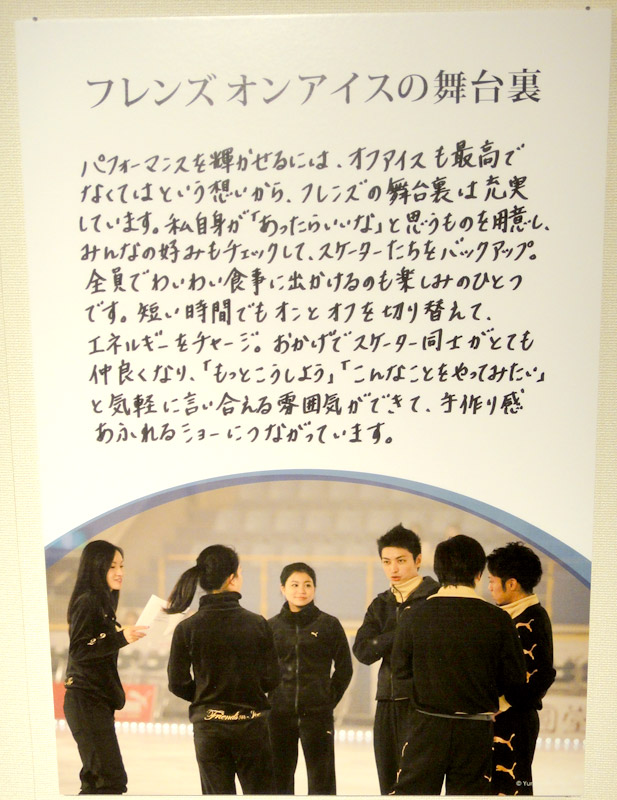 フレンズオンアイスの舞台裏
パフォーマンスを輝かせるには、オフアイスも最高で
なくてはという想いから、フレンズの舞台裏は充実
しています。私自身が「あったらいいな」と思うものを用意し、
みんなの好みもチェックして、スケーターたちをバックアップ。
全員でわいわい食事に出かけるのも楽しみのひとつ
です。短い時間でもオンとオフを切り替えて、
エネルギーをチャージ。おかげでスケーター同士がとても
仲良くなり、「もっとこうしよう」「こんなことをやってみたい」
と気軽に言い合える雰囲気ができて、手作り感
あふれるショーにつながっています。
Friends on Ice